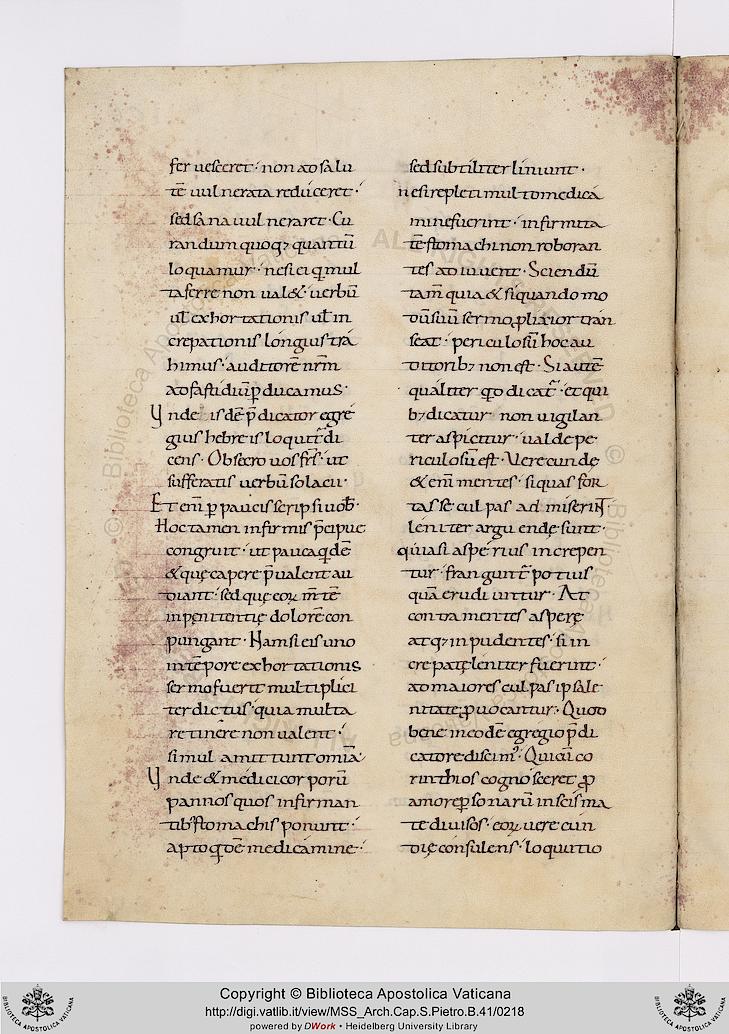 fer uesceret · non ad salu
tē uulnerata reduceret ·
sed sana uulneraret · Cu
randum quoq; quantū
loquamur · ne si ei q̄ mul
ta ferre non ual& · uerbū
ul̄ exhortationis ul̄ in
crepationis longius tra
himus · auditorē nr̄m
ad fastidiū p̄ducamus ·
Vnde isdē p̄dicator egre
gius hebreis loquit̄ di
cens · Obsecro uos fr̄s · ut
sufferatis uerbū solacii ·
Et eni p̄ paucis scripsi uob̄ ·
Hoc tamen infirmis p̄cipue
congruit · ut pauca q̄dē
& quę capere p̄ualent au
diant · sed quę eoꝝ m̄tē
in pęnitentię dolore con
pungant · Nam si eis uno
in tēpore exhortationis
sermo fuerit multiplici
ter dictus · quia multa
retinere non ualent ·
simul amittunt om̄ia ·
Vnde & medici corporū
pannos quos infirman
tib; stomachis ponunt ·
apto q̄dē medicamine ·
sed subtiliter liniunt ·
ne si repleti multo medicá
mine fuerint · infirmita
tē stomachi non roboran
tes adiuuent · Sciendū
tam̄ quia & si quando mo
dū suū sermo ꝓlixior tran
seat · periculosū hoc au
ditorib; non est · Si autē
qualiter q̄d dicat̄ · et qui
b; dicatur · non uigilan
ter aspicitur · ualde pe
riculosū est · Verecundę
& eni mentes · si quas for
tasse culpas admiserint ·
leniter arguendę sunt ·
qui si asperius increpen
tur · frangunt̄ potius
quā erudiuntur · At
contra mentes asperę
atq; inpudentes · si in
crepatę leniter fuerint ·
ad maiores culpas ipsa le
nitate ꝓuocantur · Quod
bene in eodē egregio p̄di
catore discim; · Qui cū co
rinthios cognosceret ꝓ
amore ꝑsonarū in scisma
te diuisos · eoꝝ uerecun
dię consulens · loqui tio
Copyright © Biblioteca Apostolica Vaticana
http://digi.vatlib.it/view/MSS_Arch.Cap.S.Pietro.B.41/0218
powered by DWork • Heidelberg University Library